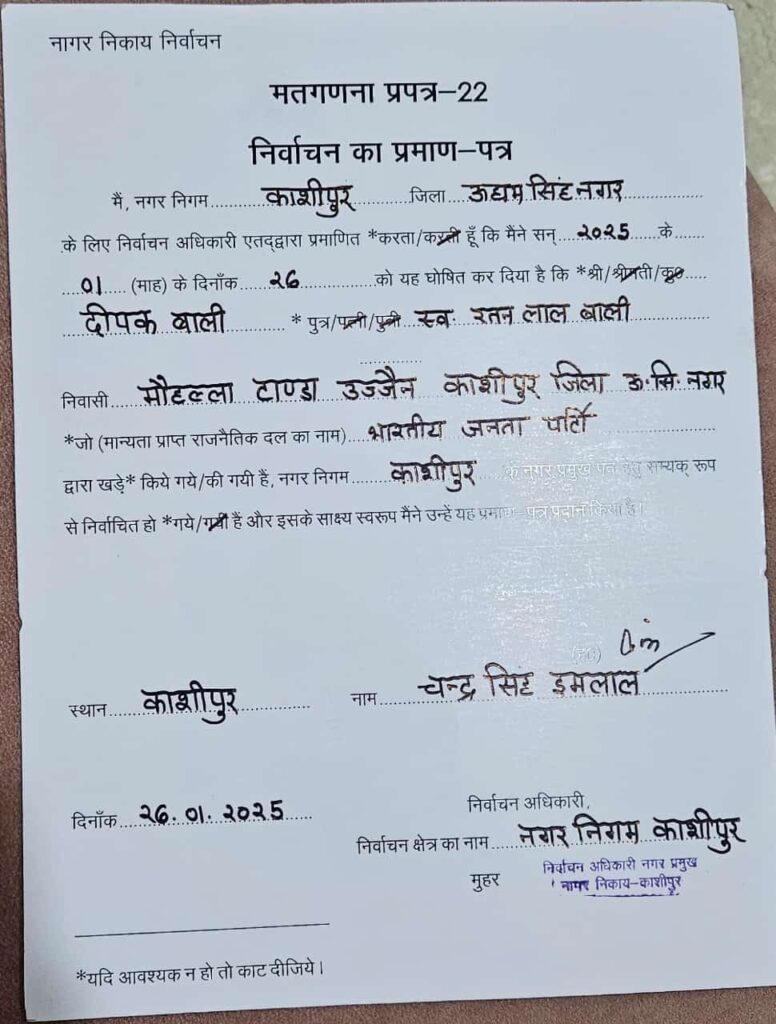 नागर निकाय निर्वाचन
मतगणना प्रपत्र–22
निर्वाचन का प्रमाण–पत्र
मैं, नगर निगम काशीपुर जिला ऊधम सिंह नगर
के लिए निर्वाचन अधिकारी एतद्द्वारा प्रमाणित *करता/करती हूँ कि मैने सन् 2025 के
01 (माह) के दिनाँक 26 को यह घोषित कर दिया है कि *श्री/श्रीमती/कु०
दीपक बाली * पुत्र/पत्नी/पुत्री स्व. रतन लाल बाली
निवासी मौहल्ला टाण्डा उज्जैन काशीपुर जिला ऊ.सि. नगर
*जो (मान्यता प्राप्त राजनैतिक दल का नाम) भारतीय जनता पार्टी
द्वारा खड़े* किये गये/की गयी हैं, नगर निगम काशीपुर के नगर प्रमुख पद हेतु सम्यक् रूप
से निर्वाचित हो *गये/गयी हैं और इसके साक्ष्य स्वरूप मैंने उन्हें यह प्रमाण–पत्र प्रदान किया है।
(ह०)
स्थान काशीपुर नाम चन्द्र सिंह इमलाल
दिनाँक 26.01.2025
निर्वाचन अधिकारी,
निर्वाचन क्षेत्र का नाम नगर निगम काशीपुर
मुहर निर्वाचन अधिकारी नगर प्रमुख
नागर निकाय–काशीपुर
*यदि आवश्यक न हो तो काट दीजिये।